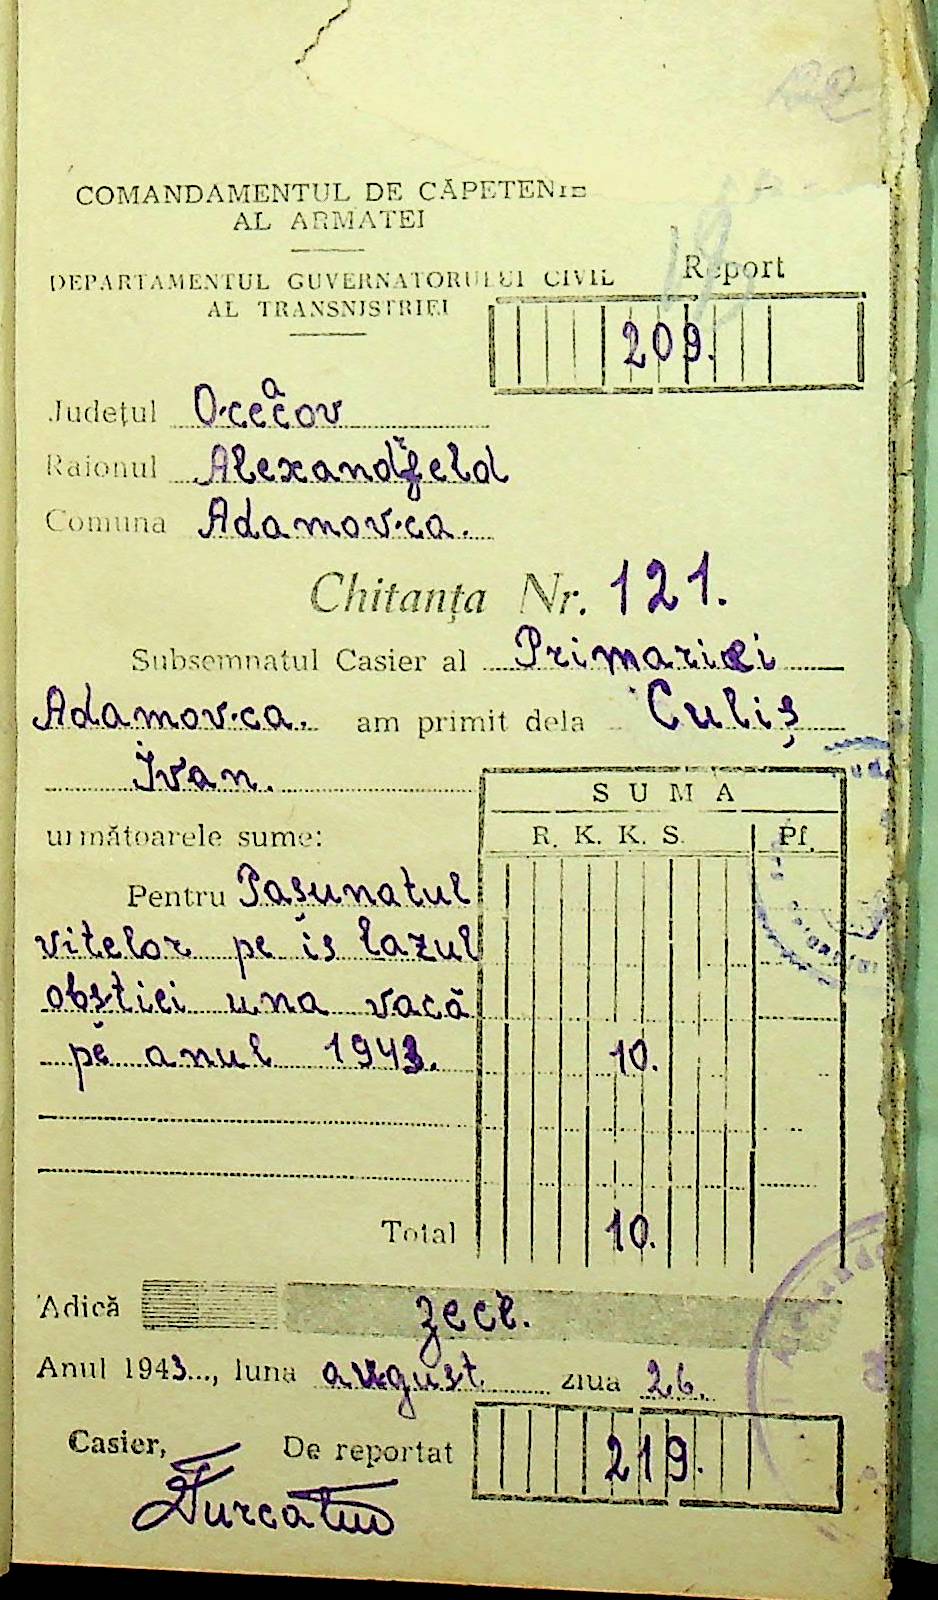 COMANDAMENTUL DE CĂPETENIE
AL ARMATEI
DEPARTAMENTUL GUVERNATORULUI CIVIL
AL TRANSNISTRIEI
Report
209.
Județul Oceacov
Raionul Alexandrfeld
Comuna Adamovca.
Chitanța Nr. 121.
Subsemnatul Casier al Primariei
Adamovca. am primit dela Culiș
Ivan.
următoarele sume:
SUMA
R. K. K. S. Pf.
Pentru Pașunatul
vitelor pe islazul
obștiei una vacă
pe anul 1943. 10.
Total 10.
Adică zece.
Anul 1943..., luna august ziua 26.
Casier, De reportat 219.
Turcanu